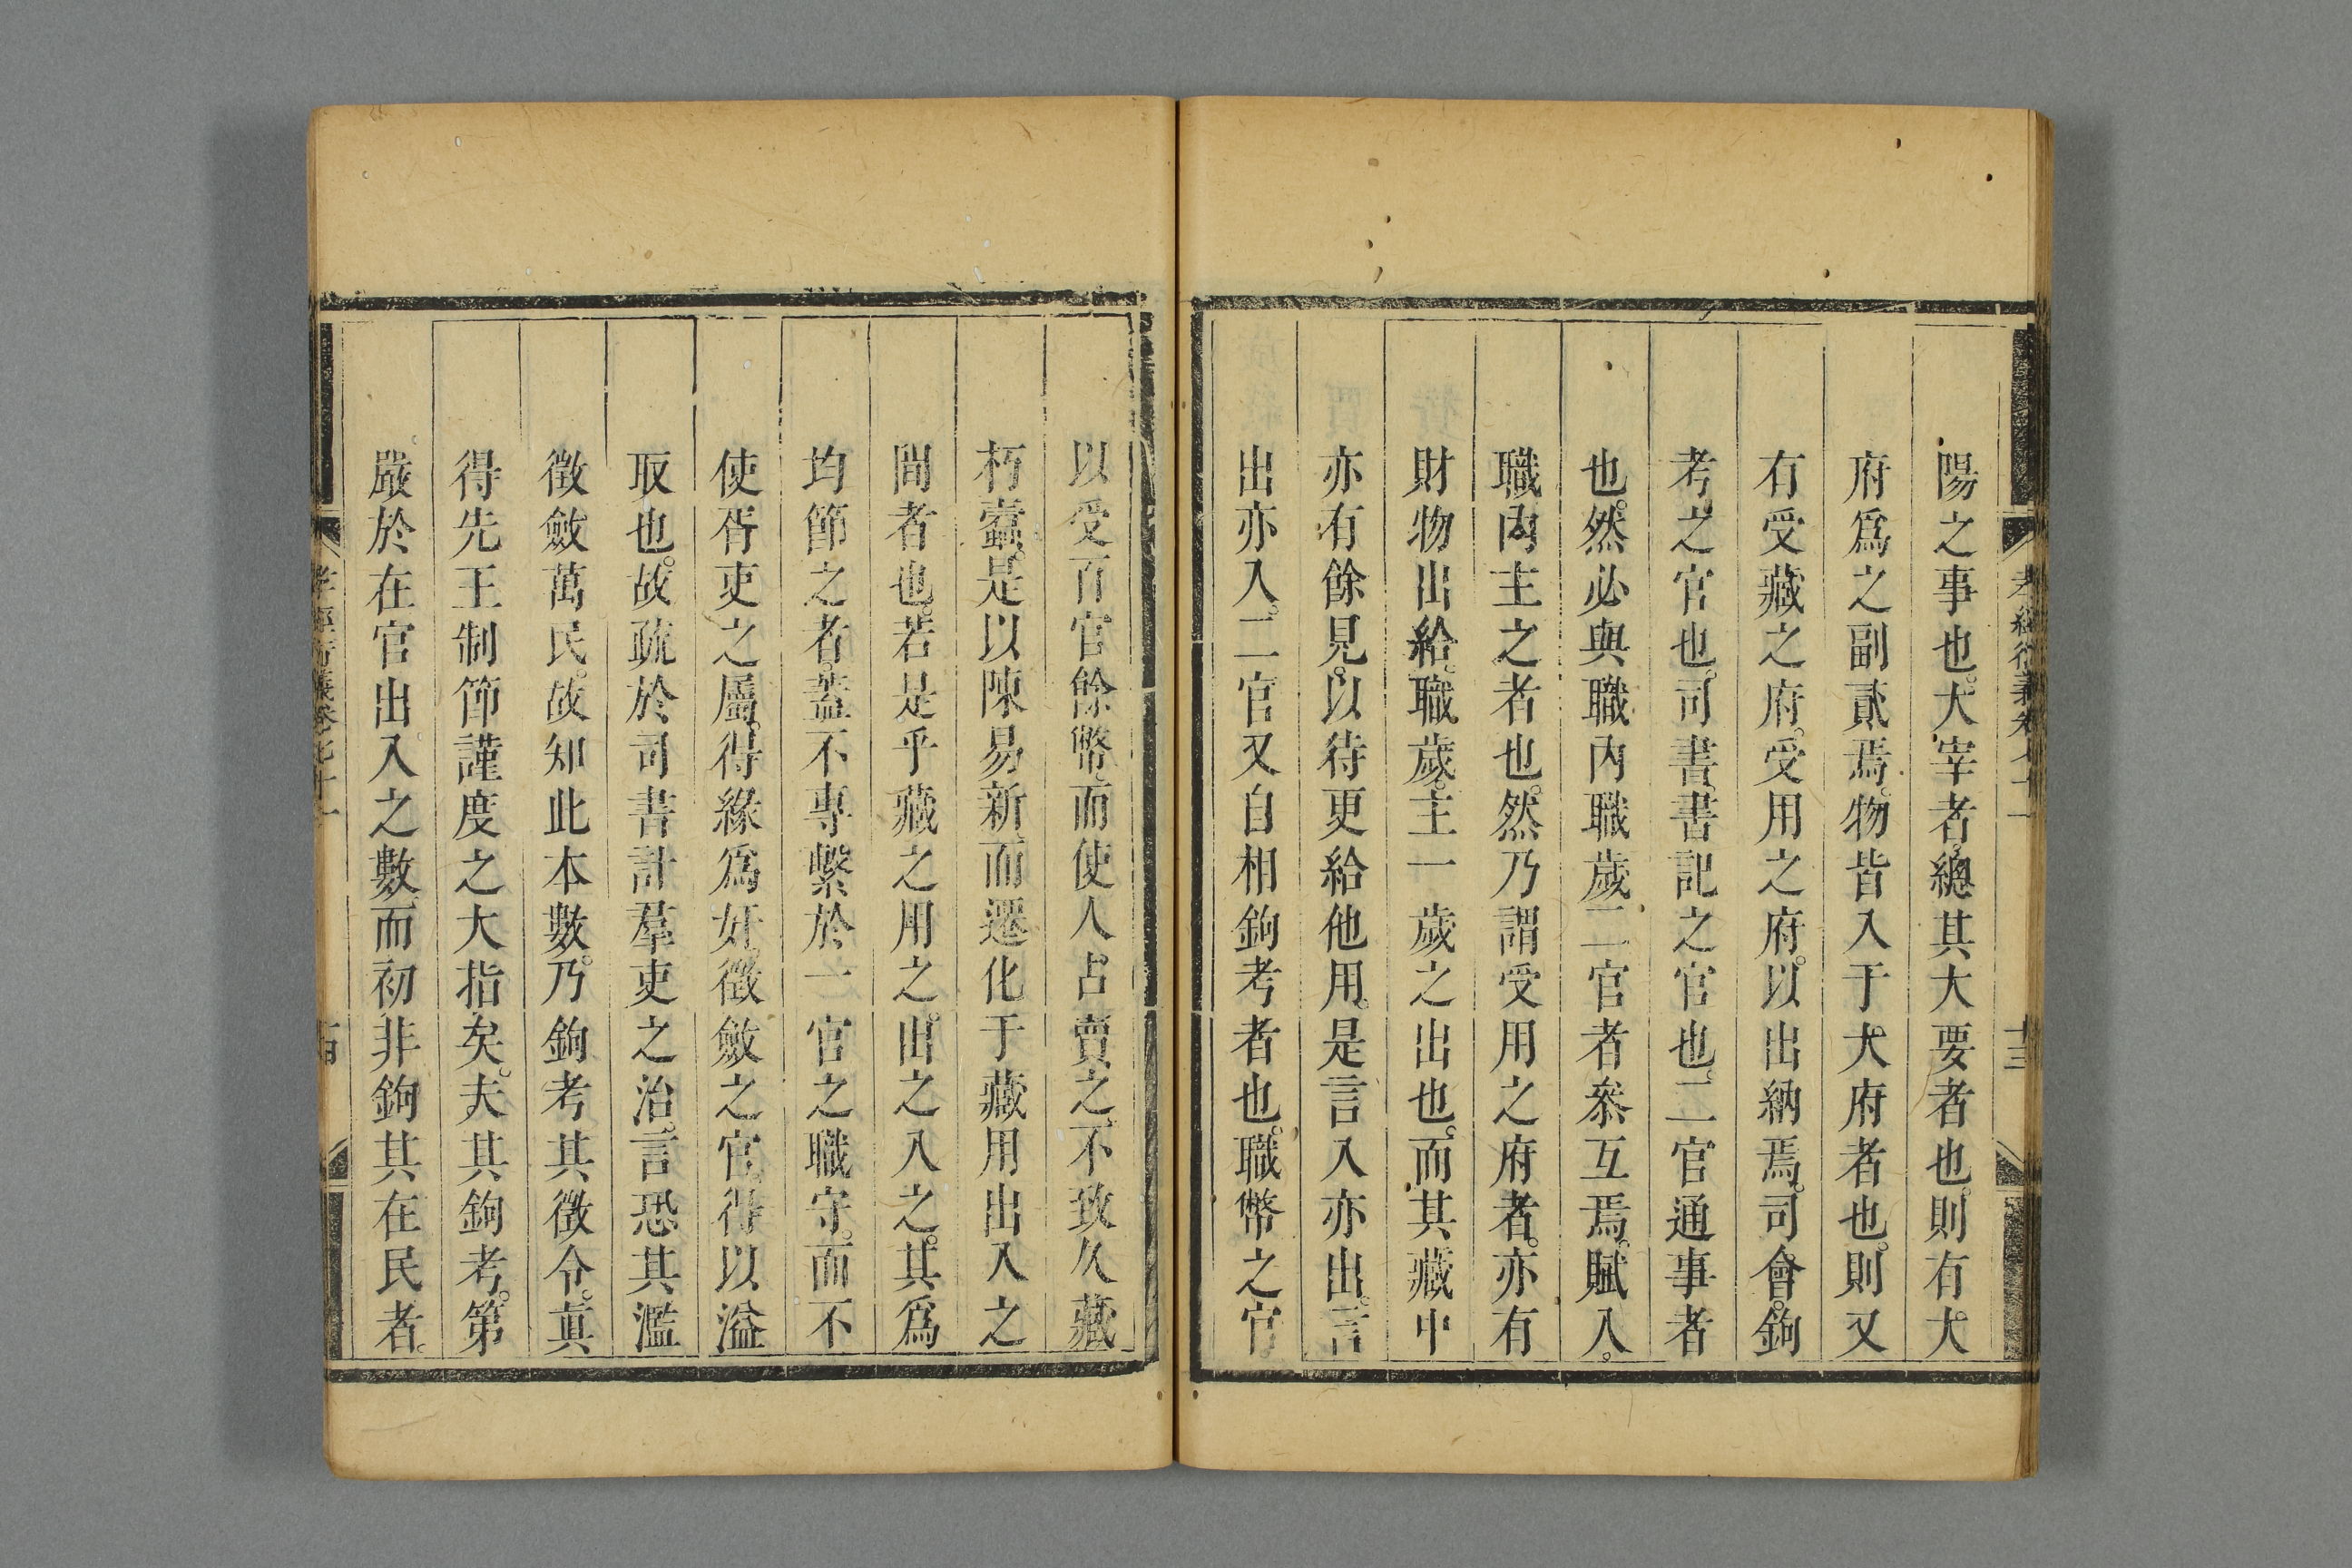 陽之事也。大宰者。總其大要者也。則有大
府爲之副貳焉。物皆入于大府者也。則又
有受藏之府。受用之府。以出納焉。司會。鉤
考之官也。司書。書記之官也。二官通事者
也。然必與職內職歲二官者叅互焉。賦入。
職內主之者也。然乃謂受用之府者。亦有
財物出給。職歲。主一歲之出也。而其藏中
亦有餘見。以待更給他用。是言入亦出。言
出亦入。二官又自相鉤考者也。職幣之官。
以受百官餘幣。而使人占賣之。不致久藏
朽蠹。是以陳易新。而遷化于藏用出入之
間者也。若是乎藏之用之。出之入之。其爲
均節之者。葢不專繫於一官之職守。而不
使胥吏之屬。得緣爲奸。徵斂之官。得以溢
取也。故疏於司書計羣吏之治。言恐其濫
徵斂萬民。故知此本數。乃鉤考其徵令。眞
得先王制節謹度之大指矣。夫其鉤考。第
嚴於在官出入之數。而初非鉤其在民者。
孝經衍義卷七十一
十三